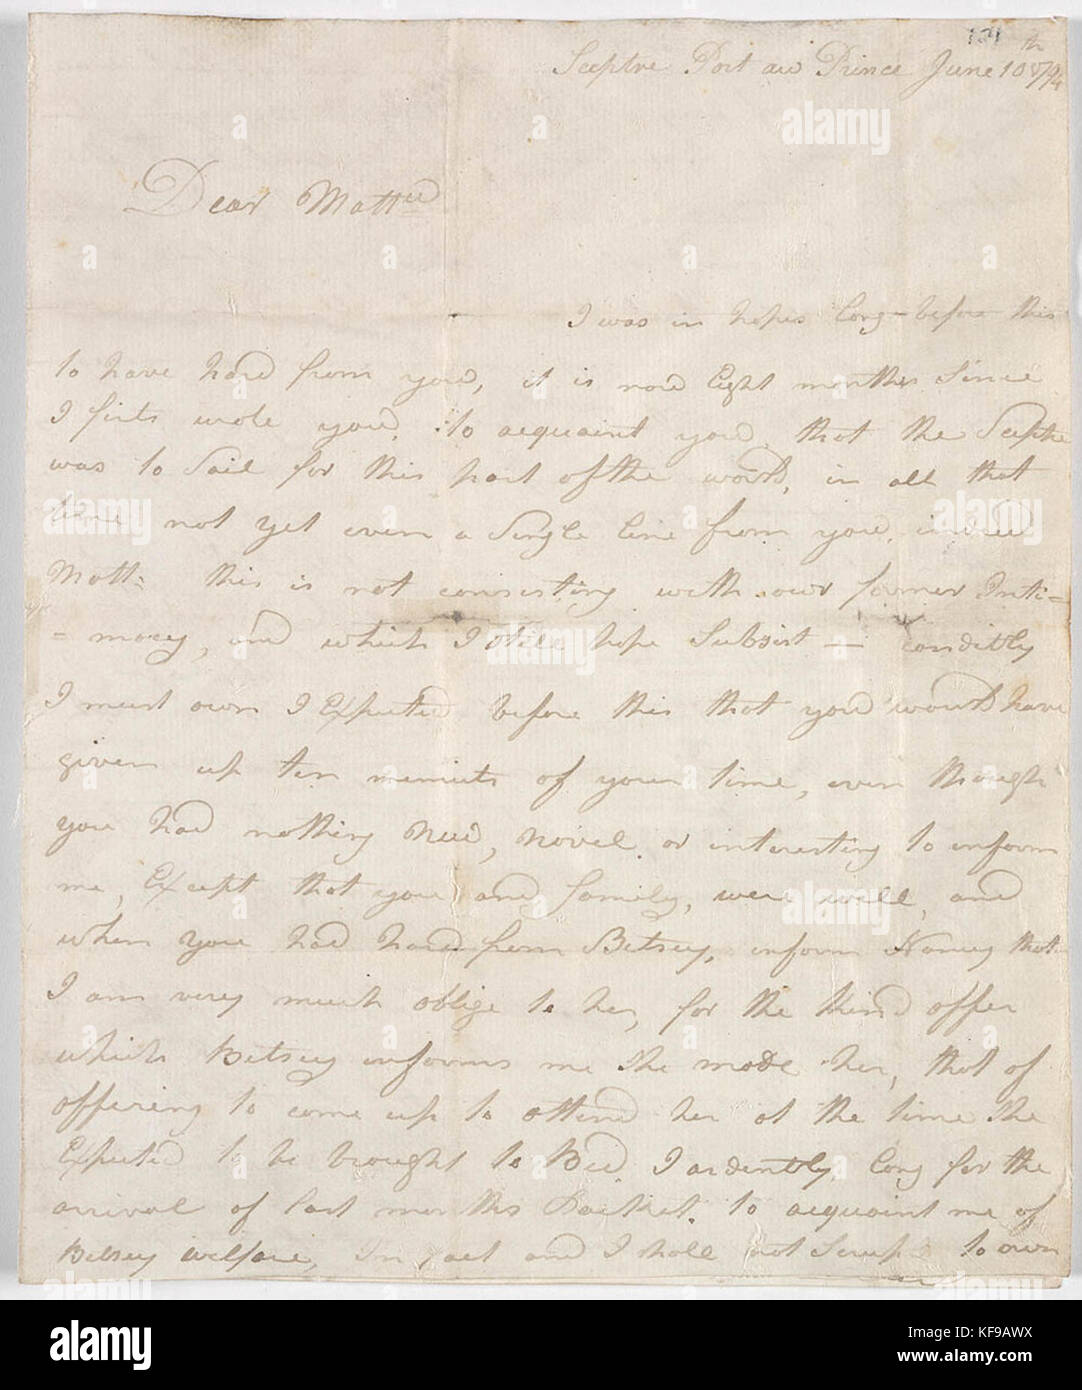 121
Sceptre Port au Prince June 10th 1794
Dear Mattw
I was in hopes long before this
to have hard from you, it is now Eight months Since
I firts wrote you, to acquaint you, that the Sceptre
was to Sail for this part of the world, in all that
time not yet even a Single line from you, indeed
Matt: this is not consisting with our former Inti=
=macy, and which I still hope Subsist — candidly
I must own I Expected before this that you would have
given up ten meniuts of your time, even though
you had nothing new, novel, or interesting to inform
me, Except that you and family, were well, and
when you had hard from Betsey, inform Nancy that
I am very much oblige to her, for the kind offer
which Betsey informs me She made her, that of
offering to come up to attend her at the time She
Expected to be brought to Bed, I ardently long for the
arrival of last months Packet, to acquaint me of
Betsey welfare, In fact and I shall not Scruple to own
alamy
a
alamy stock photo
KF9AWX
www.alamy.com